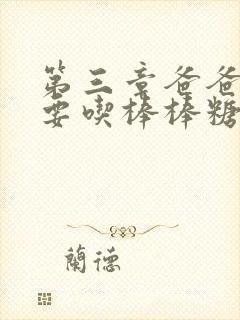 第三章爸爸
要喫棒棒糖
蘭德